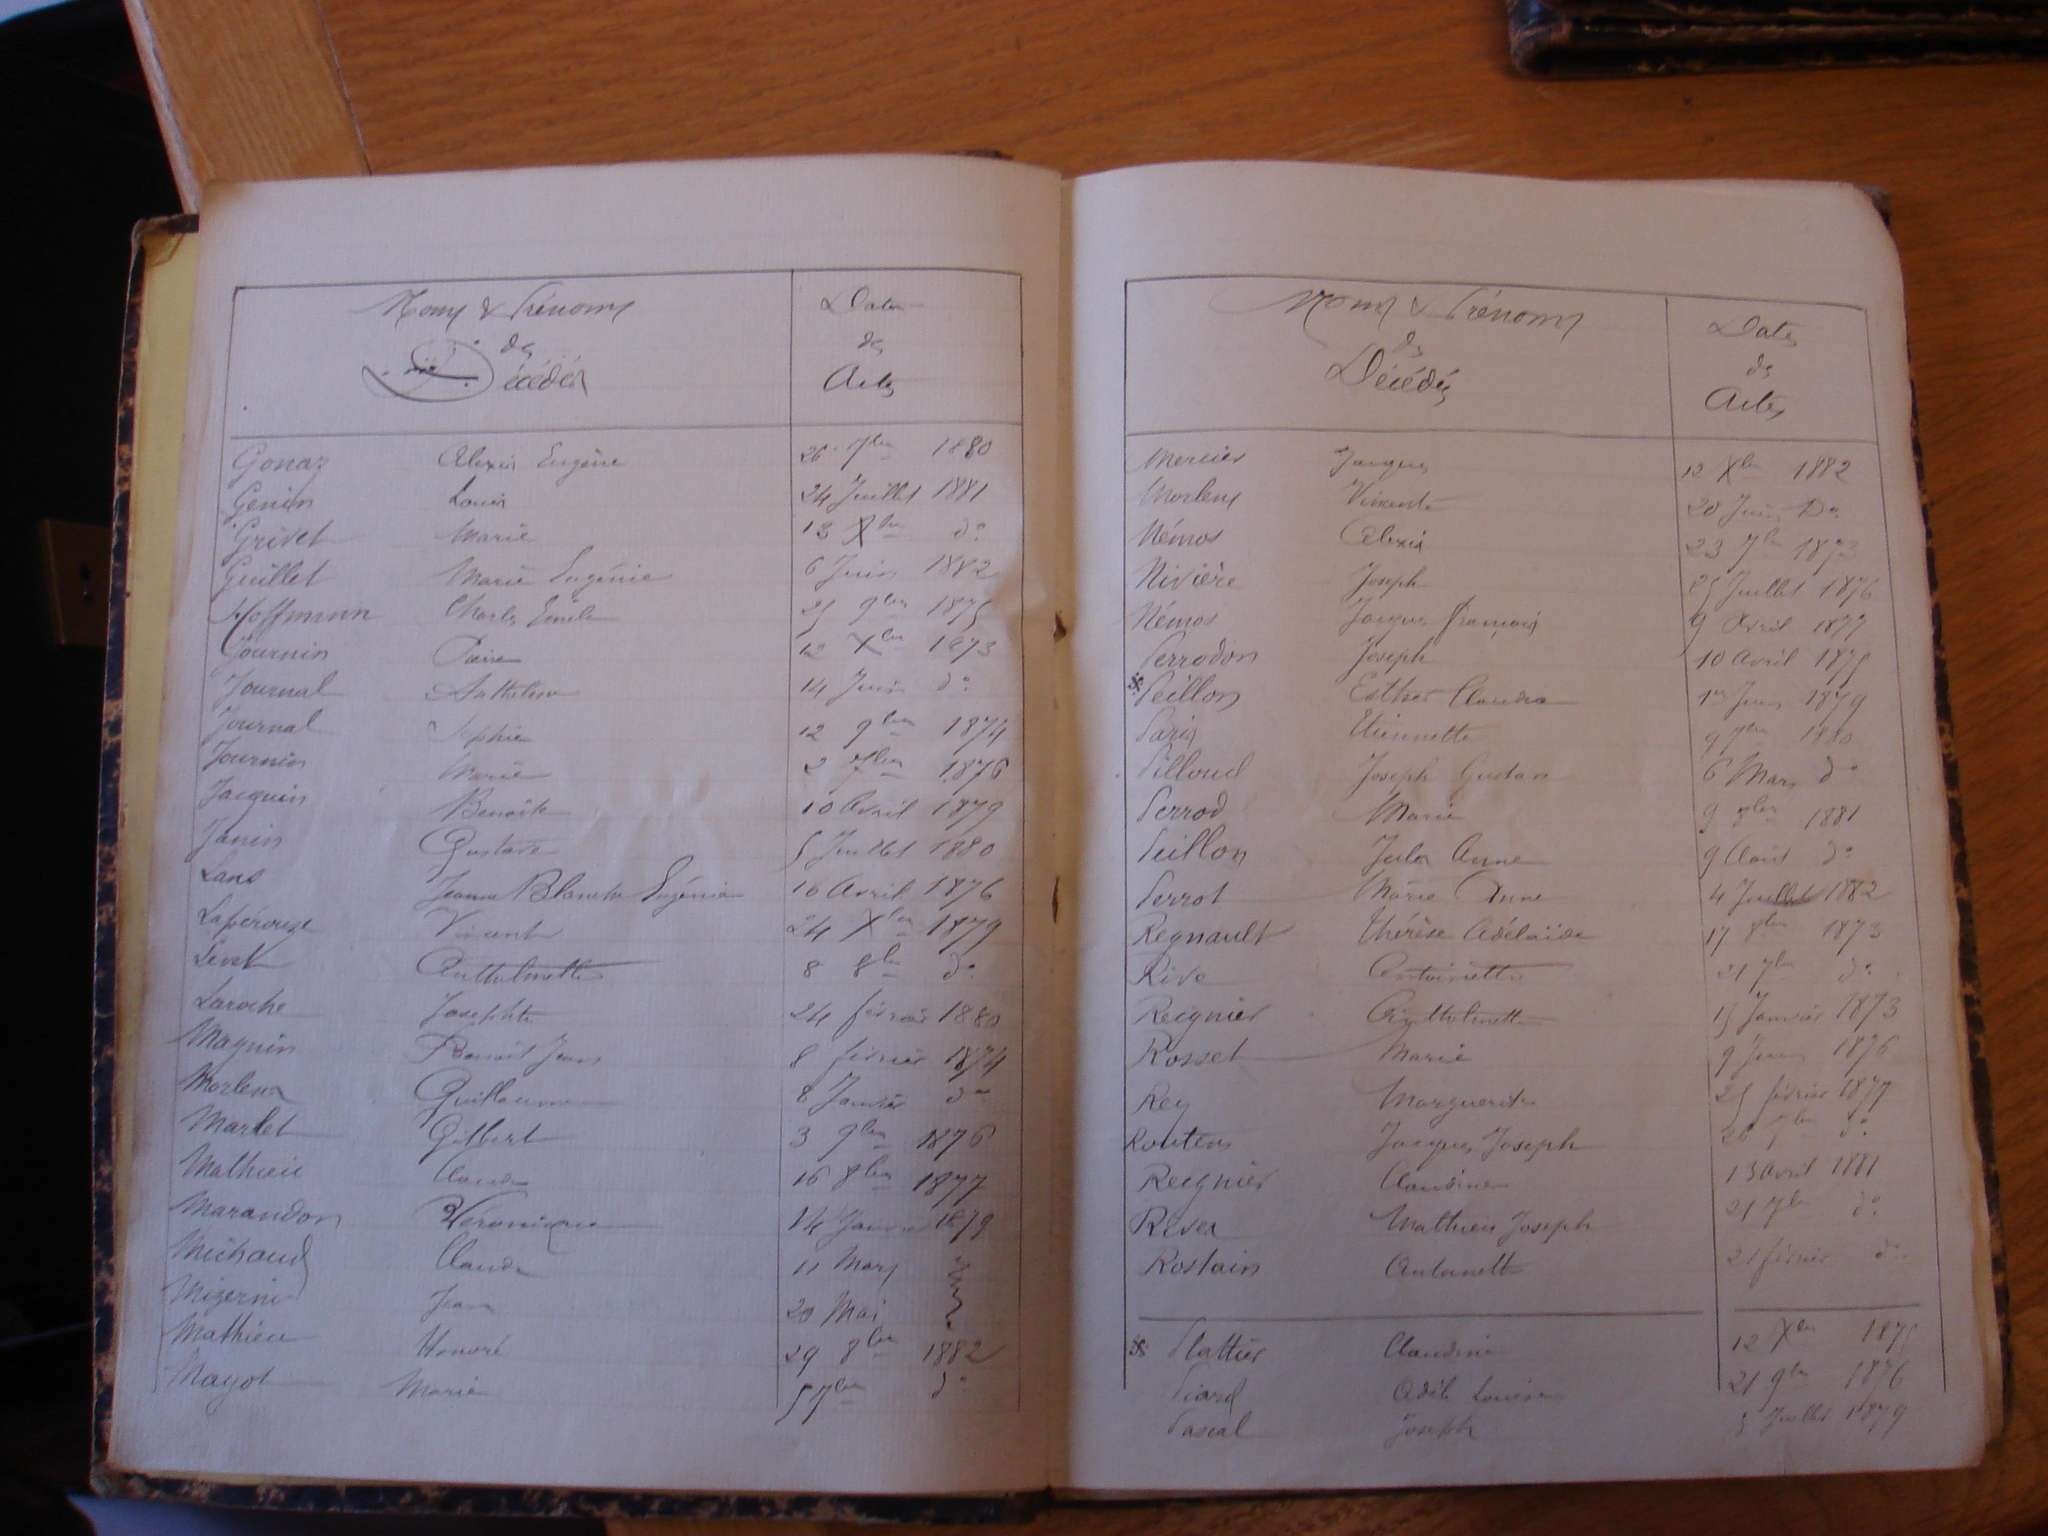 Noms & Prénoms
des
Décédés
Dates
des
Actes
Gonaz Alexis Eugène 26 7bre 1880
Genin Louis 24 Juillet 1881
Grivet Marie 13 Xbre do
Guillet Marie Eugénie 6 Juin 1882
Hoffmann Charles Emile 25 9bre 1875
Journin Pierre 12 Xbre 1873
Journal Anthelme 14 Juin do
Journal Sophie 12 9bre 1874
Journin Marie 2 7bre 1876
Jacquin Benoîte 10 Avril 1879
Janin Gustave 5 Juillet 1880
Lans Jeanne Blanche Eugénie 16 Avril 1876
Lapérouze Vincent 24 Xbre 1879
Levet Anthelmette 8 8bre do
Laroche Josephte 24 février 1880
Magnin Benoît Jean 8 février 1874
Morlens Guillaume 8 Janvier do
Martet Gilbert 3 9bre 1876
Mathieu Claude 16 8bre 1877
Marandon Véronique 14 Janvier 1879
Michaud Claude 11 Mars
Mizerin Jean 20 Mai
Mathieu Honoré 29 8bre 1882
Mayot Marie 5 7bre do
Noms & Prénoms
des
Décédés
Dates
des
Actes
Mercier Jacques 12 Xbre 1882
Morlens Vincente 20 Juin Do
Némos Alexis 23 7bre 1873
Nivière Joseph 25 Juillet 1876
Némos Jacques François 9 Avril 1877
Perrodon Joseph 10 Avril 1875
Peillon Esther Claudia 1er Juin 1879
Paris Etiennette 9 7bre 1880
Pilloud Joseph Gustave 6 Mars do
Perrod Marie 9 8bre 1881
Peillon Jules Anne 9 Août do
Perrot Marie Anne 4 Juillet 1882
Regnault Thérèse Adélaïde 17 8bre 1873
Rive Antoinette 21 7bre do
Reignier Anthelmette 15 Janvier 1873
Rosset Marie 9 Juin 1876
Rey Marguerite 25 février 1877
Routens Jacques Joseph 26 7bre do
Reignier Claudine 13 Avril 1881
Rives Mathieu Joseph 21 7bre do
Rostain Antoinette 21 février do
Plattier Claudine 12 Xbre 1875
Piard Adèle Louise 21 9bre 1876
Pascal Joseph 5 Juillet 1879